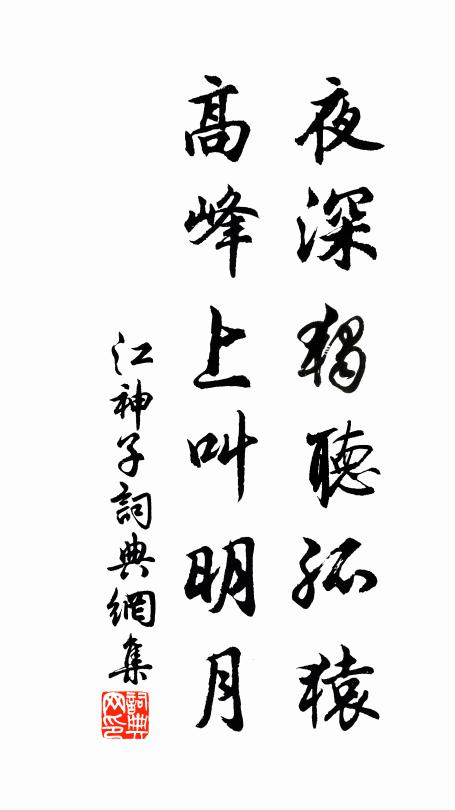 夜深獨聽孤猿
高峰上叫明月
江神子詞典網集
詞典網印